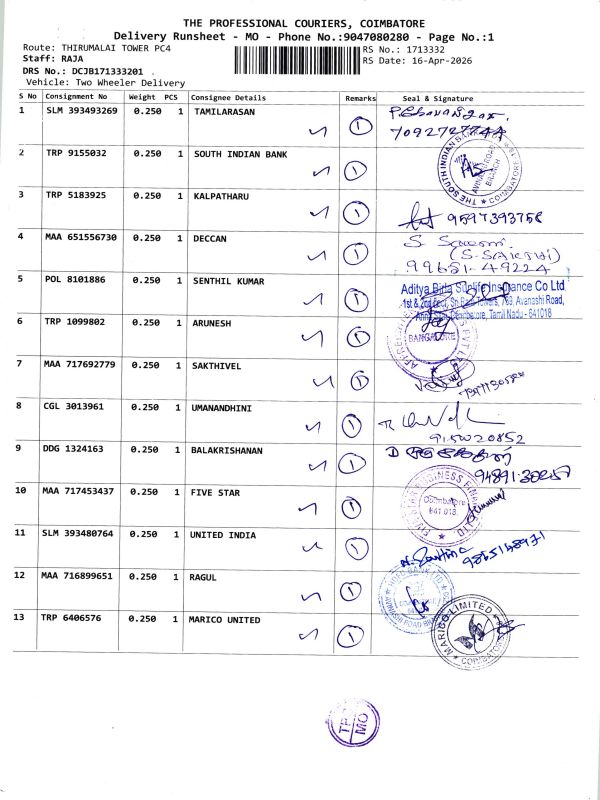 THE PROFESSIONAL COURIERS, COIMBATORE
Delivery Runsheet - MO - Phone No.:9047080280 - Page No.:1
Route: THIRUMALAI TOWER PC4
RS No.: 1713332
Staff: RAJA
RS Date: 16-Apr-2026
DRS No.: DCJB171333201
Vehicle: Two Wheeler Delivery
S No Consignment No Weight PCS Consignee Details Remarks Seal & Signature
1 SLM 393493269 0.250 1 TAMILARASAN 1
2 TRP 9155032 0.250 1 SOUTH INDIAN BANK 1
THE SOUTH INDIAN BANK
COIMBATORE
3 TRP 5183925 0.250 1 KALPATHARU 1 9597393758
4 MAA 651556730 0.250 1 DECCAN 1
(S. SAKTHI)
99651-49224
5 POL 8101886 0.250 1 SENTHIL KUMAR 1
Aditya Birla Sunlife Insurance Co Ltd
Avanashi Road,
Coimbatore, Tamil Nadu - 641018
6 TRP 1099802 0.250 1 ARUNESH 1
BANGALORE
7 MAA 717692779 0.250 1 SAKTHIVEL 1
8 CGL 3013961 0.250 1 UMANANDHINI 1
9150020852
9 DDG 1324163 0.250 1 BALAKRISHANAN 1
10 MAA 717453437 0.250 1 FIVE STAR 1
FIVE STAR BUSINESS FINANCE LTD
Coimbatore
641 018
11 SLM 393480764 0.250 1 UNITED INDIA 1
12 MAA 716899651 0.250 1 RAGUL 1
13 TRP 6406576 0.250 1 MARICO UNITED 1
MARICO LIMITED
COIMBATORE
MO